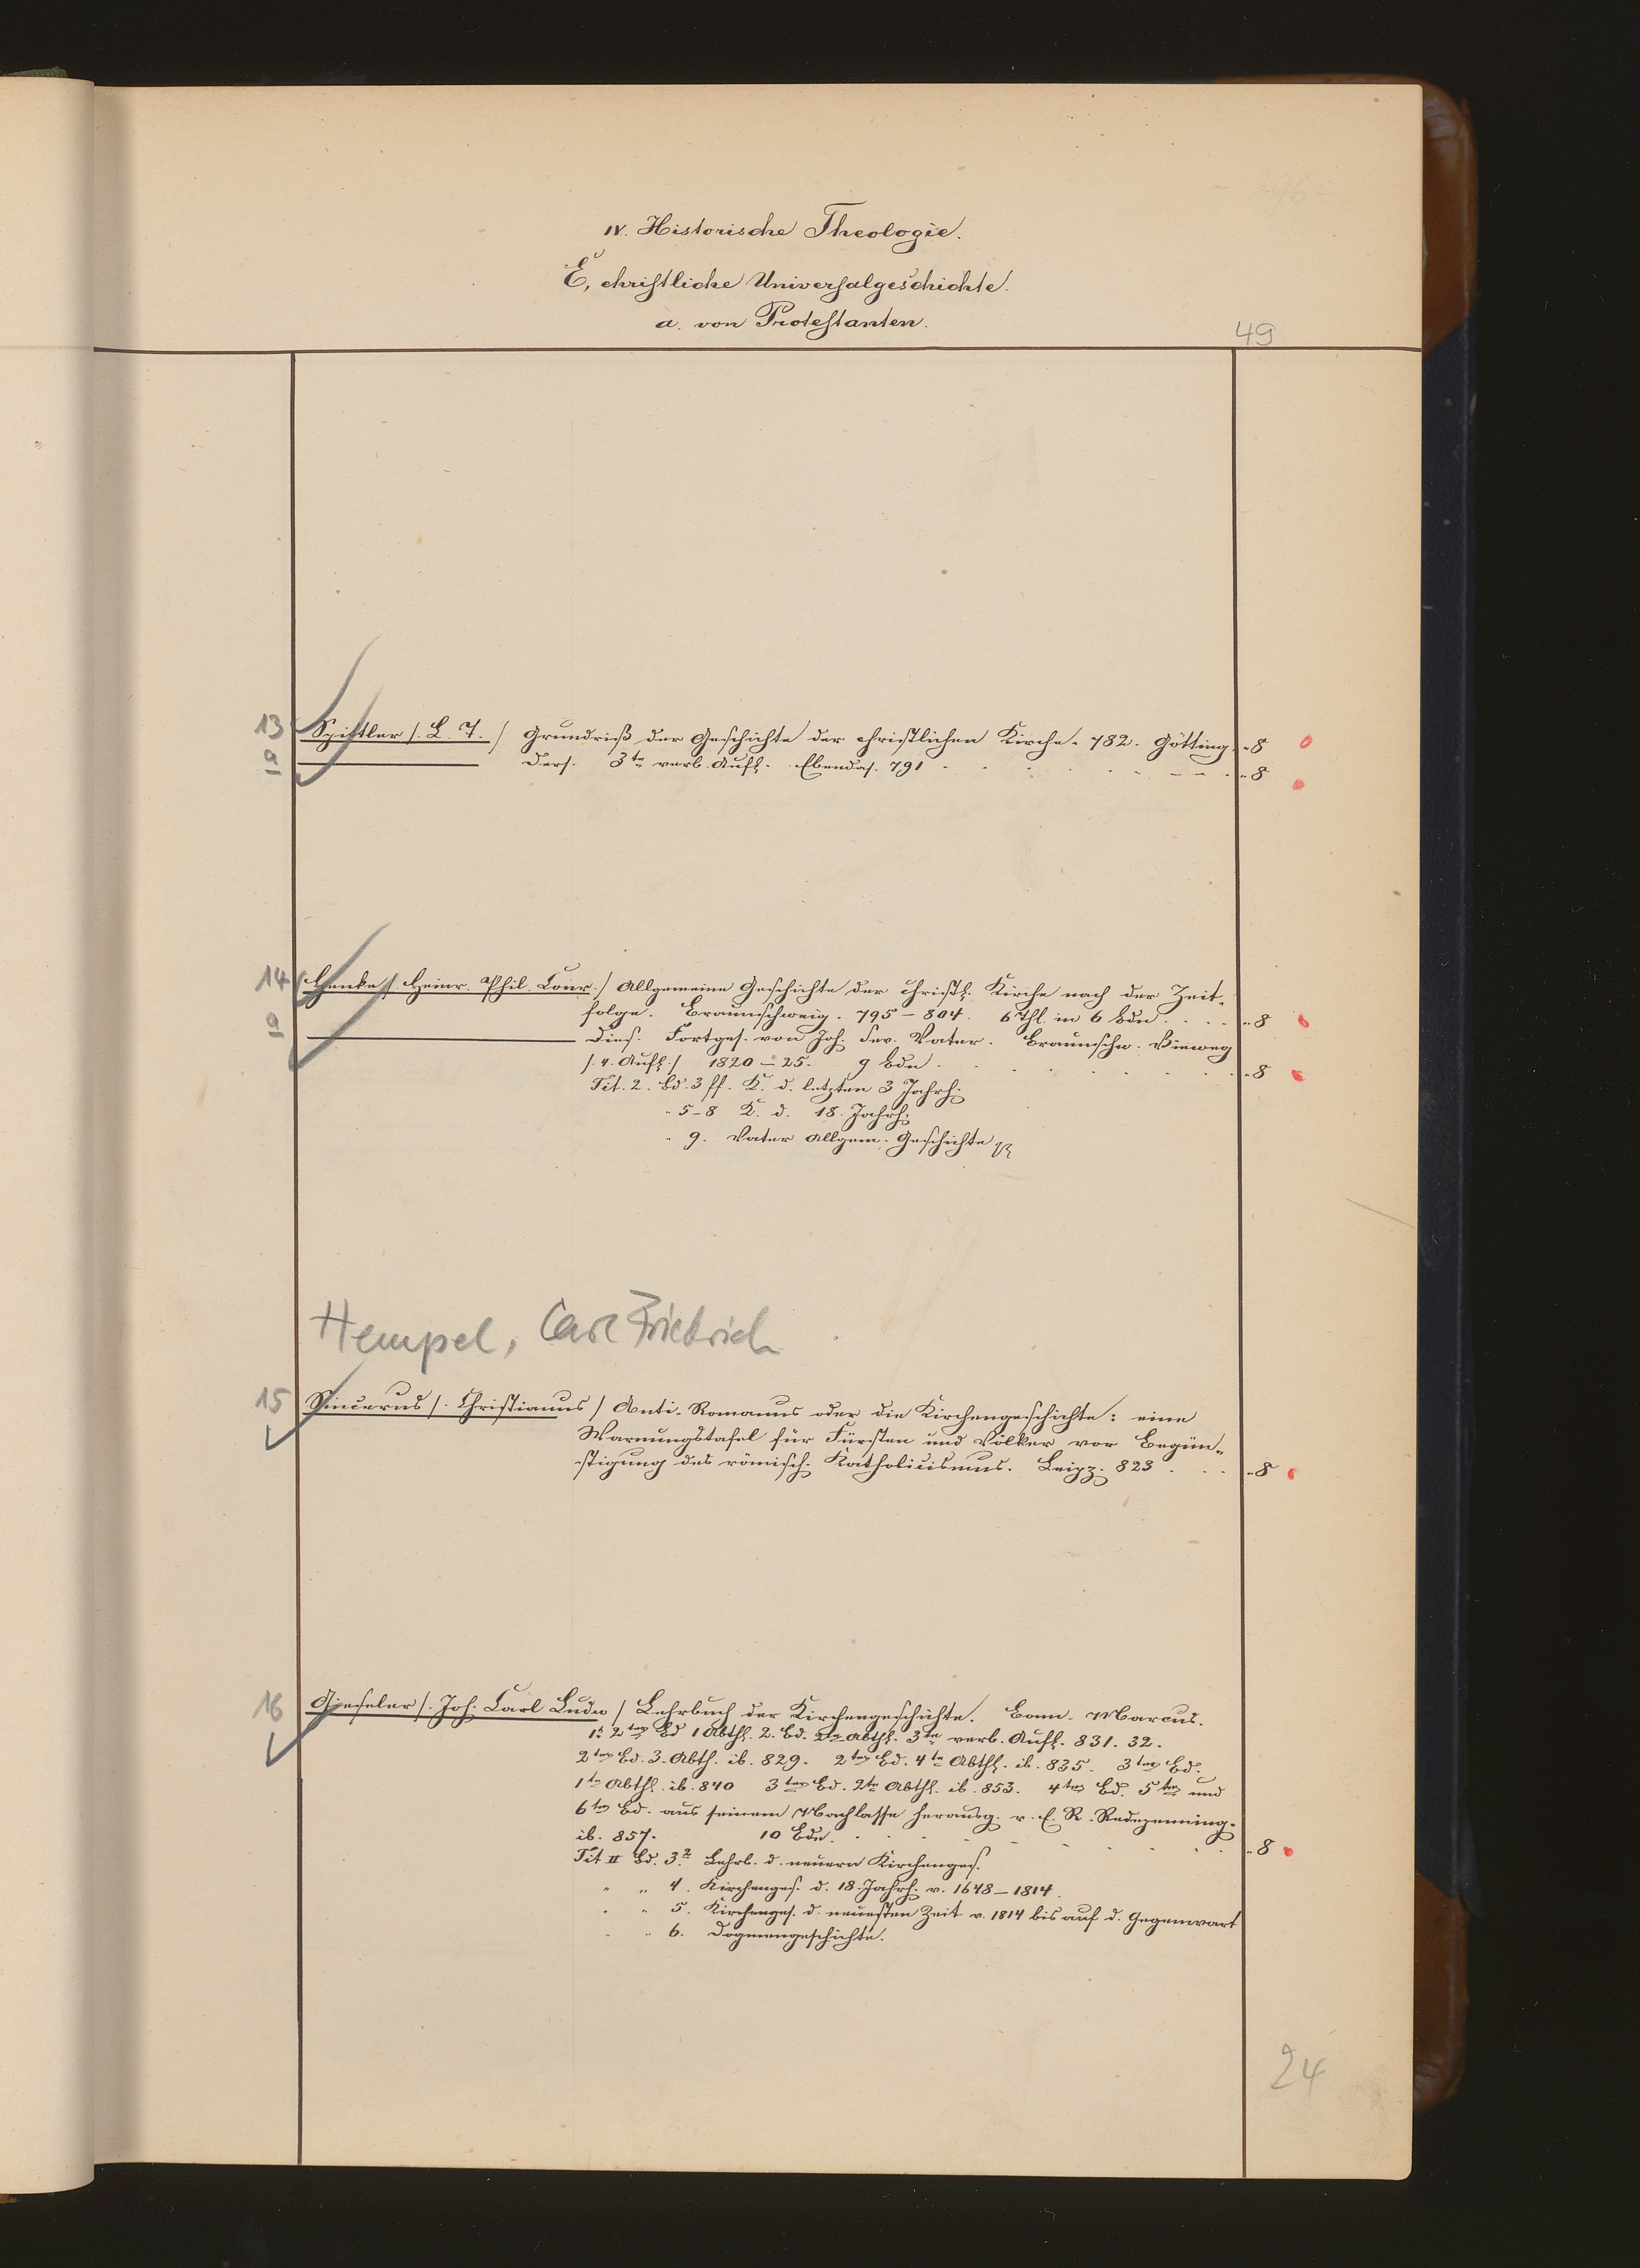 IV. Historische Theologie.
E, christliche Universalgeschichte.
a. von Protestanten.
49
13 Spittler /. L. T. / Grundriß der Geschichte der christlichen Kirche. 782. Götting. „8
a Ders. 3te verb. Aufl. Ebendas. 791 „8
14 Henke /. Heinr. Phil. Conr. / Allgemeine Geschichte der christl. Kirche nach der Zeit-
folge. Braunschweig. 795–804. 6 Thl. in 6 Bdn. . . . „8
a Dies. Fortges. von Joh. Sev. Vater. Braunschw. Vieweg
/. 4. Aufl. / 1820–25. 9 Bde. „8
Tit. 2. Bd. 3 ff. K. d. letzten 3 Jahrh.
„ 5–8 K. d. 18. Jahrh.
„ 9. Vater Allgem. Geschichte
Hempel, Carl Friedrich
15 Sincerus /. Christianus / Anti-Romanus oder die Kirchengeschichte: eine
Warnungstafel für Fürsten und Völker vor Begün-
stigung des römisch. Katholicismus. Leipz. 823 . . . „8
16 Gieseler /. Joh. Carl Ludw / Lehrbuch der Kirchengeschichte. Bonn. Marcus.
2ter Bd 1 Abthl. 2. Bd. 2te Abthl. 3te verb. Aufl. 831. 32.
2ter Bd. 3. Abth. ib. 829. 2ter Bd. 4te Abthl. ib. 835. 3ter Bd.
1te Abthl. ib. 840 3ter Bd. 2te Abthl. ib. 853. 4ter Bd. 5ter und
6ter Bd. aus seinem Nachlasse herausg. v. E. R. Redepenning.
ib. 857. 10 Bde. „8
Tit II Bd. 3.2 Lehrb. d. neuern Kirchenges.
„ „ 4. Kirchenges. d. 18. Jahrh. v. 1648–1814.
„ „ 5. Kirchenges. d. neuesten Zeit v. 1814 bis auf d. Gegenwart
„ „ 6. Dogmengeschichte.
24